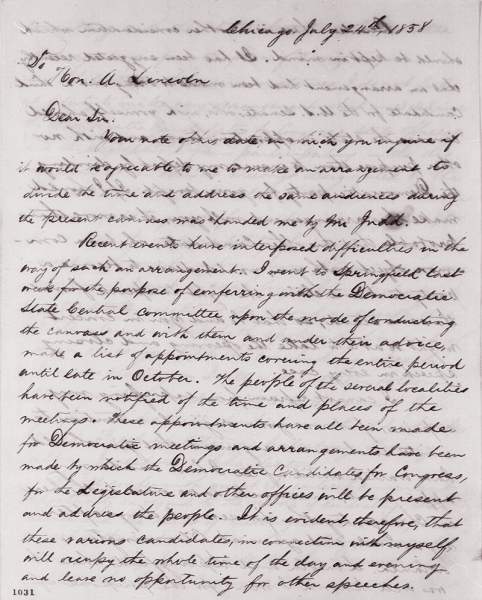 Chicago July 24th, 1858
To
Hon. A. Lincoln
Dear Sir.
Your note of this date in which you inquire if
it would be agreeable to me to make an arrangement to
divide the time and address the same audiences during
the present canvass was handed me by Mr Judd.
Recent events have interposed difficulties in the
way of such an arrangement. I went to Springfield last
week for the purpose of conferring with the Democratic
State Central Committee upon the mode of conducting
the canvass and with them and under their advice
made a list of appointments covering the entire period
until late in October. The people of the several localities
have been notified of the time and places of the
meetings. These appointments have all been made
for Democratic meetings and arrangements have been
made by which the Democratic Candidates for Congress,
for the Legislature and other offices will be present
and address the people. It is evident therefore, that
these various candidates, in connection with myself,
will occupy the whole time of the day and evening
and leave no opportunity for other speeches.
1031